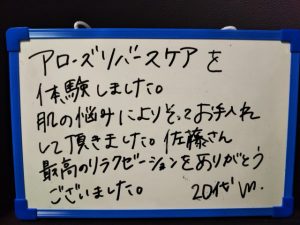 アローズリバースケアを
体験しました。
肌の悩みによりそってお手入れ
して頂きました。佐藤さん
最高のリラクゼーションをありがとう
ございました。
20代